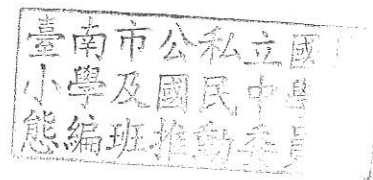 臺南市公私立國
小學及國民中學
態編班推動委員